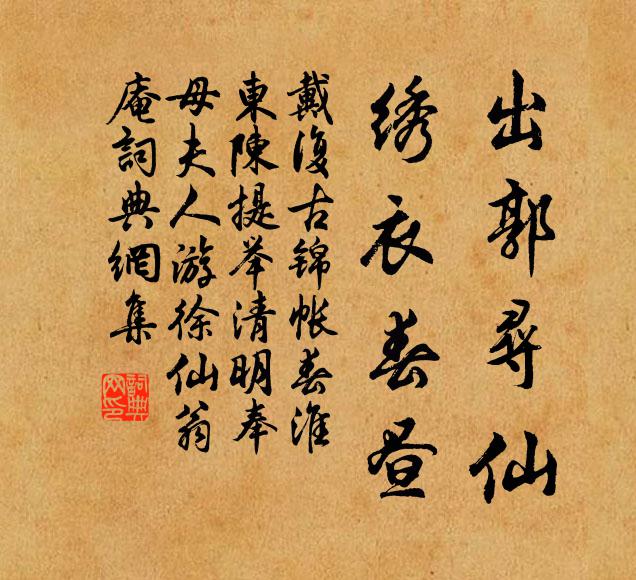 出郭尋仙
绣衣春昼
戴復古錦帐春淮
東陳提举清明奉
母夫人游徐仙翁
庵詞典網集
詞典
网印